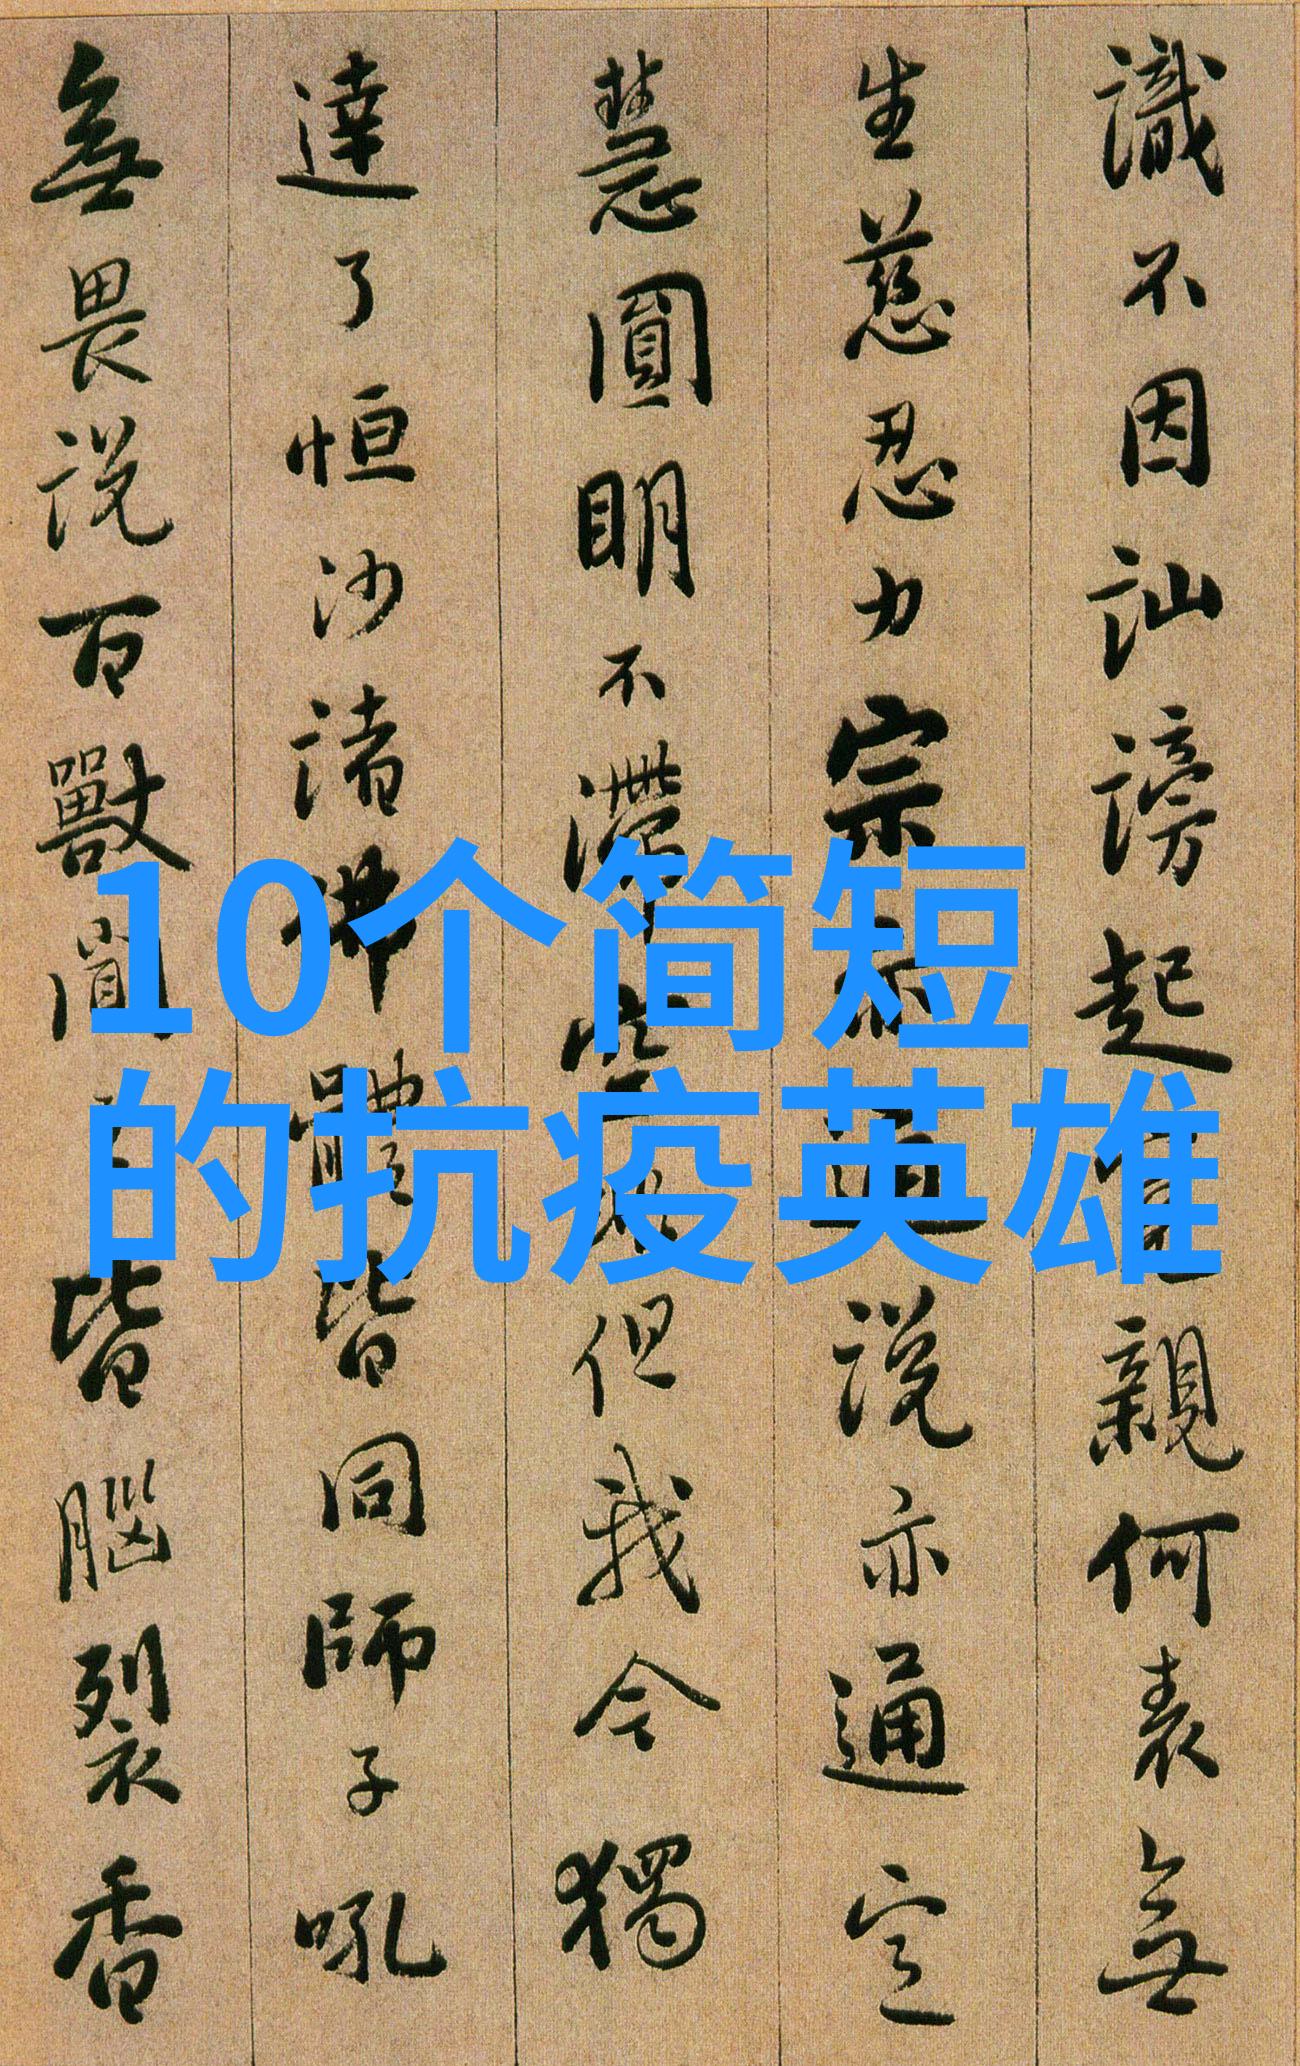 識不因訕謗起親何表無
生慈忍力宗說亦通定
慧圓明不滯但我今獨
達了恒沙諸佛體皆同師子吼
無畏說百獸聞皆腦裂香
10个简短
的抗疫英雄